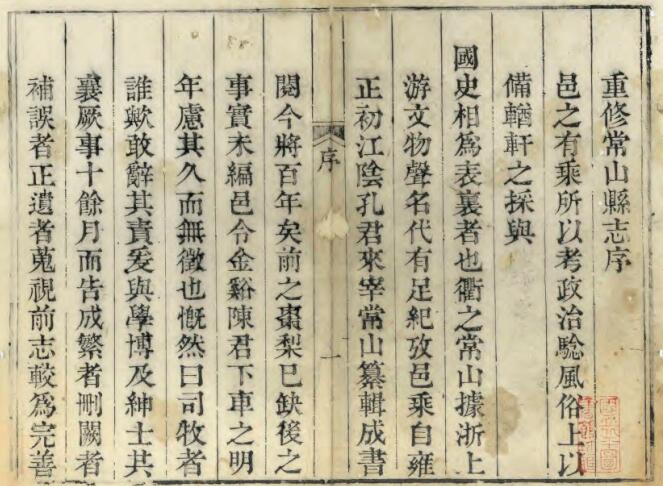 重修常山縣志序
邑之有乘所以考政治騐風俗上以
備輶軒之採與
國史相爲表裏者也衢之常山據浙上
游文物聲名代有足紀攷邑乘自雍
正初江陰孔君來宰常山纂輯成書
序
一
閱今將百年矣前之棗梨已缺後之
事實未編邑令金谿陳君下車之明
年慮其久而無徵也慨然曰司牧者
誰歟敢辭其責爰與學博及紳士其
襄厥事十餘月而告成繁者刪闕者
補誤者正遺者蒐視前志較爲完善